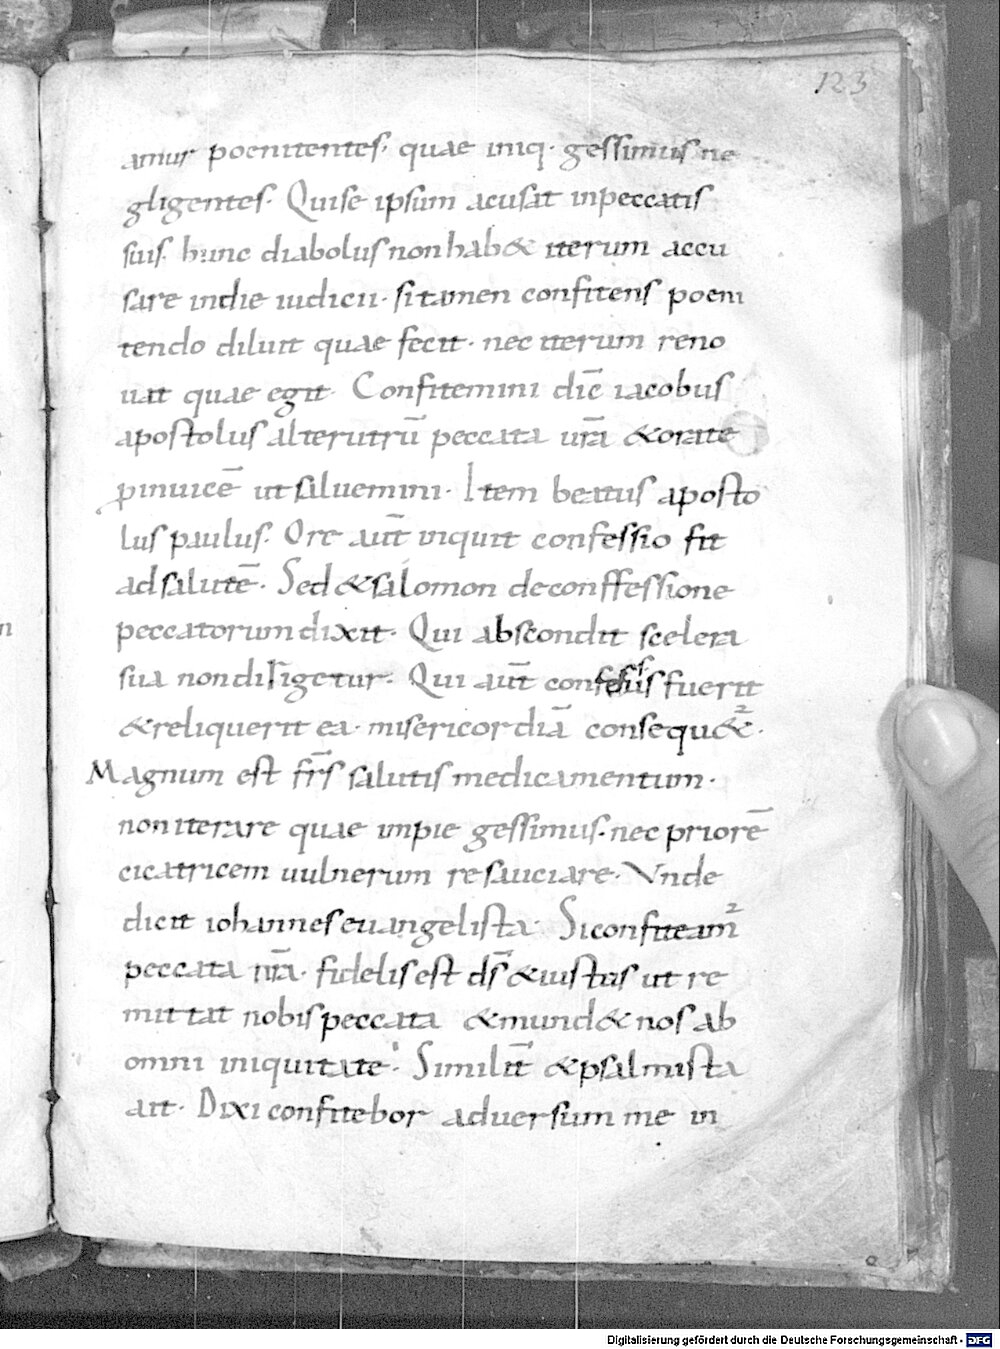 123
amur poenitentes, quae iniq· gessimus ne
gligentes. Quise ipsum acusat inpeccatis
suis. hunc diabolus non hab& iterum accu
sare indie iudicii· si tamen confitens poeni
tendo diluit quae fecit· nec iterum reno
uat quae egit· Confitemini dic̄ iacobus
apostolus alterutrū peccata urā &orate
pinuicē ut saluemini· Item beatus aposto
lus paulus. Ore aūt inquit confessio fit
ad salutē· Sed &salomon deconffessione
peccatorum dixit· Qui abscondit scelera
sua non dirigetur. Qui aūt confessus fuerit
&reliquerit ea· misericordiā consequ&2·
Magnum est fr̄s salutis medicamentum·
non iterare quae impie gessimus· nec priorē
cicatricem uulnerum resauciare· Vnde
dicit iohannes euangelista· Si confiteam2
peccata nrā· fidelis est ds̄ &iustus ut re
mittat nobis peccata &mund& nos ab
omni iniquitate· Similit̄ &psalmista
ait· Dixi confitebor aduersum me in
Digitalisierung gefördert durch die Deutsche Forschungsgemeinschaft - DFG